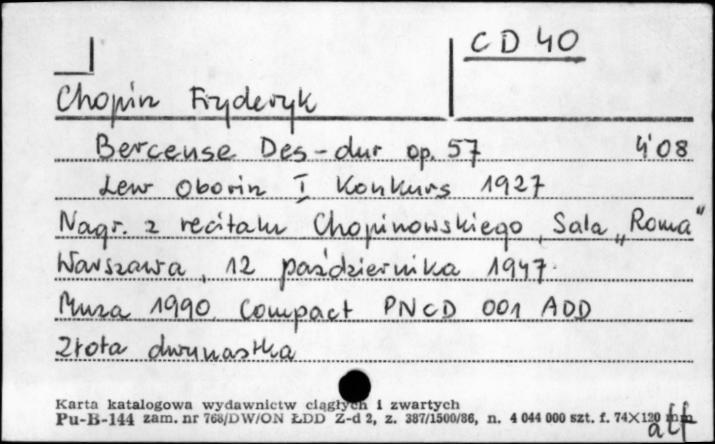 CD 40
Chopin Fryderyk
Berceuse Des-dur op. 57 4'08
Lew Oborin I Konkurs 1927
Nagr. z recitalu Chopinowskiego, Sala „Roma“
Warszawa, 12 października 1947.
Muza 1990 Compact PNCD 001 ADD
Złota dwunastka
Karta katalogowa wydawnictw ciągłych i zwartych
Pu-B-144 zam. nr 768/DW/ON ŁDD Z-d 2, z. 387/1500/86, n. 4 044 000 szt. f. 74×120 mm
alf